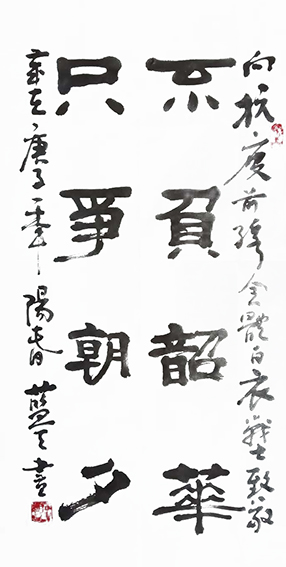 向抗疫前线全體白衣戰士致敬
不負韶華
只爭朝夕
歲在庚子年陽春藍天書